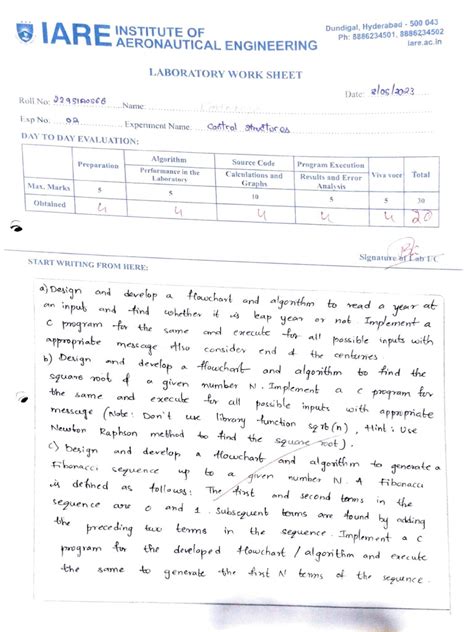 IARE INSTITUTE OF
AERONAUTICAL ENGINEERING
Dundigal, Hyderabad - 500 043
Ph: 8886234501, 8886234502
iare.ac.in
LABORATORY WORK SHEET
Date:
Roll No: Name:
Exp No: 02 Experiment Name: Control Structures
DAY TO DAY EVALUATION:
Preparation Algorithm Source Code Program Execution Viva voce Total
Performance in the Laboratory Calculations and Graphs Results and Error Analysis
Max. Marks 5 5 10 5 5 30
Obtained 4 4 4 4 4 20
Signature of Lab I/C
START WRITING FROM HERE:
a) Design and develop a flowchart and algorithm to read a year at
an input and find whether it is leap year or not Implement a
C program for the same and execute for all possible inputs with
appropriate message Also consider end of the centuries
b) Design and develop a flowchart and algorithm to find the
square root of a given number N. Implement a C program for
the same and execute for all possible inputs with appropriate
message (Note: Don't use library function sqrt(n), Hint: Use
Newton Raphson method to find the square root).
c) Design and develop a flowchart and algorithm to generate a
Fibonacci sequence up to a given number N. A Fibonacci
is defined as follows: The first and second terms in the
sequence are 0 and 1. Subsequent terms are found by adding
the preceding two terms in the sequence. Implement a C
program for the developed flowchart / algorithm and execute
the same to generate the first N terms of the sequence.